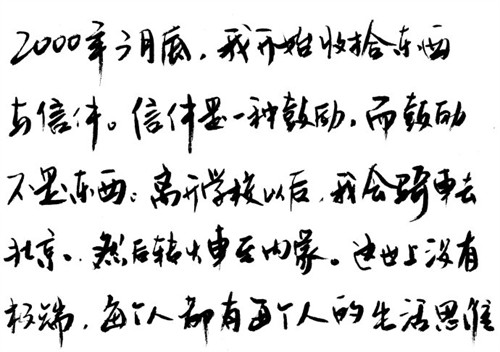 2000年3月底,我开始收拾东西
与信件。信件是一种鼓励,而鼓励
不是东西。离开学校以后,我会骑車去
北京。然后转火車至内蒙。这世上没有
极端,每个人都有每个人的生活思维